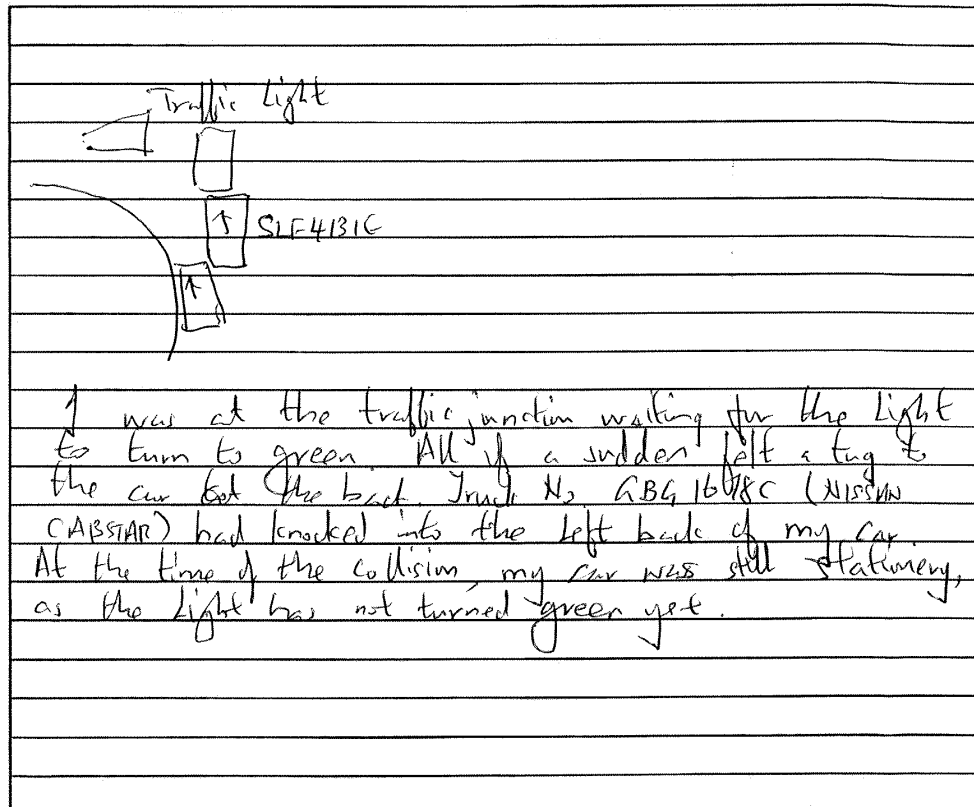 Traffic Light
SLF4131E
I was at the traffic junction waiting for the Light
to turn to green. All of a sudden felt a tug to
the car at the back. Truck No GBG (NISSAN
CABSTAR) had knocked into the Left back of my car.
At the time of the collision, my car was still stationery,
as the Light has not turned green yet.